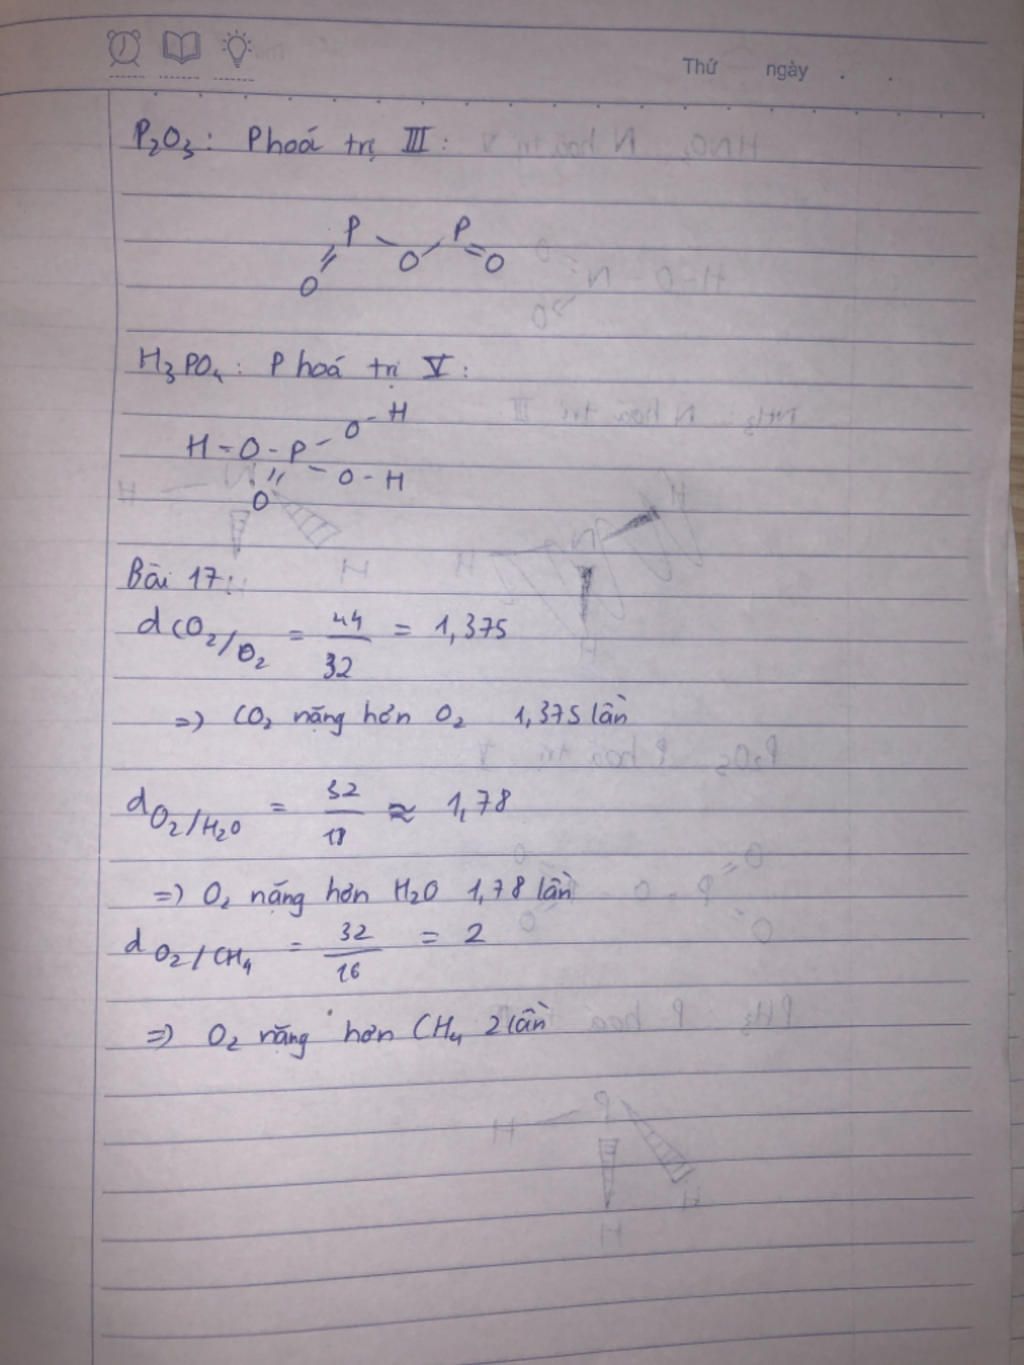 Thứ ngày . .
P₂O₃: P hoá trị III:
P P
O O O
H₃PO₄: P hoá trị V:
O - H
H - O - P
O - H
O
Bài 17:
dCO₂/O₂ = 44/32 = 1,375
=> CO₂ nặng hơn O₂ 1,375 lần
dO₂/H₂O = 32/18 ≈ 1,78
=> O₂ nặng hơn H₂O 1,78 lần
dO₂/CH₄ = 32/16 = 2
=> O₂ nặng hơn CH₄ 2 lần